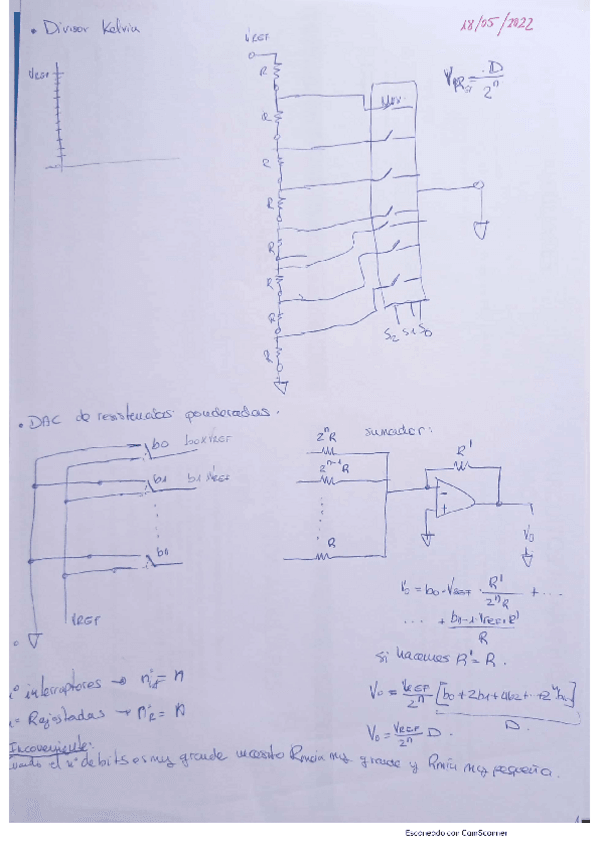 • Divisor Kelvin
18/05/2022
VREF
VREF
R
R
R
R
R
R
R
R
MUX
S2 S1 S0
• DAC de resistencias ponderadas.
b0 b0xVREF
b1 b1 VREF
VREF
sumador:
2^n R
2^n-1 R
R
R'
V0
V0 = b0·VREF · R'/2^n R + ...
... + bn-1 VREF·R'/R
Si hacemos R' = R.
V0 = VREF/2^n [b0+2b1+4b2+..2^n bn]
D.
V0 = VREF/2^n D.
nº interruptores → nºif = n
Rajustadas → nºR = n
Inconveniente:
cuando el nº de bits es muy grande necesito Rmax muy grande y Rmin muy pequeña.
Escaneado con CamScanner